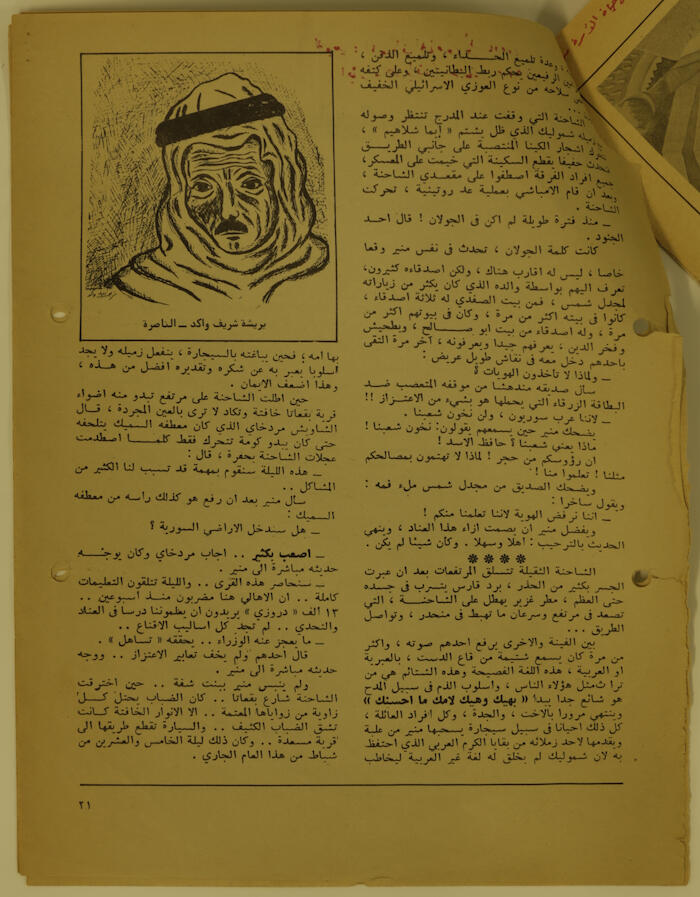 وعدة تلميع الحـــذاء ، وتلميع الذقن ،
الرفيعين يحكم ربط البطانيتين ، وعلى كتفه
سلاحه من نوع العوزي الاسرائيلي الخفيف
...
الشاحنة التي وقفت عند المدرج تنتظر وصوله
شموليك الذي ظل يشتم « ايما شلاهيم » ،
اشجار الكينا المنتصبة على جانبي الطريـــق
خفيفا يقطع السكينة التي خيمت على المعسكر،
جميع افراد الفرقة اصطفوا على مقعدي الشاحنة ،
وبعد ان قام الامباشي بعملية عد روتينية ، تحركت
الشاحنة .
ــ منذ فترة طويلة لم اكن في الجولان ! قال احـد
الجنود .
كانت كلمة الجولان ، تحدث في نفس منير وقعا
خاصا ، ليس له اقارب هناك ، ولكن اصدقاءه كثيرون،
تعرف اليهم بواسطة والده الذي كان يكثر من زياراته
لمجدل شمس ، فمن بيت الصفدي له ثلاثة اصدقاء ،
كانوا في بيته اكثر من مرة ، وكان في بيوتهم اكثر من
مرة ، وله اصدقاء من بيت ابو صـــــالح ، وبطحيش
وفخر الدين ، يعرفهم جيدا ويعرفونه ، آخر مرة التقى
باحدهم دخل معه في نقاش طويل عريض :
ــ ولماذا لا تأخذون الهويات ؟
سأل صديقه مندهشا من موقفه المتعصب ضـــد
البطاقة الزرقاء التي يحملها هو بشيء من الاعتـزاز !!
ــ لاننا عرب سوريون ، ولن نخون شعبنا .
يضحك منير حين يسمعهم يقولون: نخون شعبنا !
ماذا يعني شعبنا ؟ حافظ الاسد !
ان رؤوسكم من حجر ! لماذا لا تهتمون بمصالحكم
مثلنا ! تعلموا منا ! .
ويضحك الصديق من مجدل شمس ملء فمه :
ويقول ساخرا :
ــ اننا نرفض الهوية لاننا تعلمنا منكم !
ويفضل منير ان يصمت ازاء هذا العناد ، وينهي
الحديث بالترحيب : اهلا وسهلا . وكأن شيئا لم يكن .
****
الشاحنة الثقيلة تتسلق المرتفعات بعد ان عبرت
الجسر بكثير من الحذر ، برد قارس يتسرب في جسده
حتى العظم ، مطر غزير يهطل على الشاحنـــة ، التي
تصعد في مرتفع وسرعان ما تهبط في منحدر ، وتواصل
الطريق ...
بين الفينة والاخرى يرفع احدهم صوته ، واكثر
من مرة كان يسمع شتيمة من قاع الدست ، بالعبرية
او العربية ، هذه اللغة الفصيحة وهذه الشتائم هي من
تراث يمثل هؤلاء الناس ، واسلوب الذم في سبيل المدح
هو شائع جدا يبدأ « بهيك وهيك لامك ما احسنك »
وينتهي مرورا بالاخت ، والجدة ، وكل افراد العائلة ،
كل ذلك احيانا في سبيل سيجارة يسحبها منير من علبة
ويقدمها لاحد زملائه من بقايا الكرم العربي الذي احتفظ
به لان شموليك لم يخلق له لغة غير العربية ليخاطب
بريشة شريف واكد ــ الناصرة
بها امه ، فحين يباغته بالسيجارة ، ينفعل زميله ولا يجد
اسلوبا يعبر به عن شكره وتقديره افضل من هذه ،
وهذا اضعف الايمان .
حين اطلت الشاحنة على مرتفع تبدو منه اضواء
قرية بقعاتا خافتة وتكاد لا ترى بالعين المجردة ، قـــال
الشاويش مردخاي الذي كان معطفه السميك يتلحفه
حتى كان يبدو كومة تتحرك فقط كلمـــا اصطدمت
عجلات الشاحنة بحفرة ، قال :
ــ هذه الليلة سنقوم بمهمة قد تسبب لنا الكثير من
المشاكل ..
سأل منير بعد ان رفع هو كذلك رأسه من معطفه
السميك :
ــ هل سندخل الاراضي السورية ؟
ــ اصعب بكثير .. اجاب مردخاي وكان يوجـــه
حديثه مباشرة الى منير .
ــ سنحاصر هذه القرى .. والليلة تتلقون التعليمات
كاملة .. ان الاهالي هنا مضربون منـــذ اسبوعين ..
١٣ الف « دروزي » يريدون ان يعلمونا درسا في العناد
والتحدي .. لم تجد كل اساليب الاقناع ..
ــ ما يعجز عنه الوزراء .. يحققه « تساهل » .
قال احدهم ولم يخف تعابير الاعتزاز .. ووجه
حديثه مباشرة الى منير .
ولم ينبس منير ببنت شفة .. حين اخترقت
الشاحنة شارع بقعاتا .. كان الضباب يحتل كـــل
زاوية من زواياها المعتمة .. الا الانوار الخافتة كـانت
تشق الضباب الكثيف .. والسيارة تقطع طريقها الى
قرية مسعدة .. وكان ذلك ليلة الخامس والعشرين من
شباط من هذا العام الجاري .
٢١